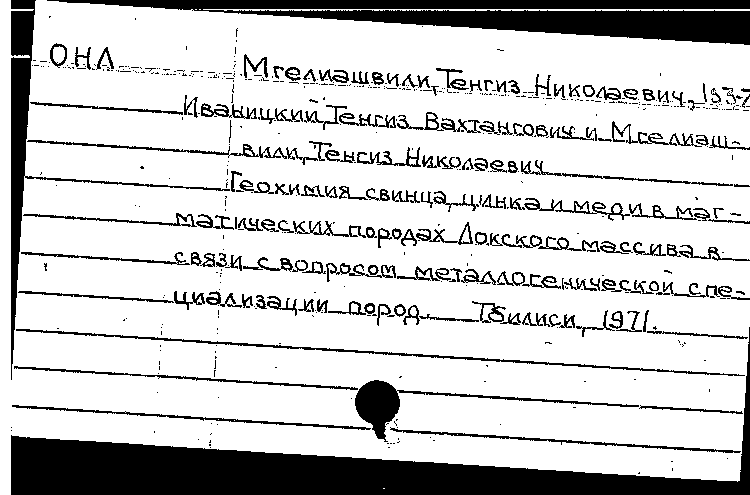 ОНЛ
Мгелиашвили, Тенгиз Николаевич, 1937
Иваницкий, Тенгиз Вахтангович и Мгелиаш-
вили, Тенгиз Николаевич
Геохимия свинца, цинка и меди в маг-
матических породах Локского массива в
связи с вопросом металлогенической спе-
циализации пород. Тбилиси, 1971.